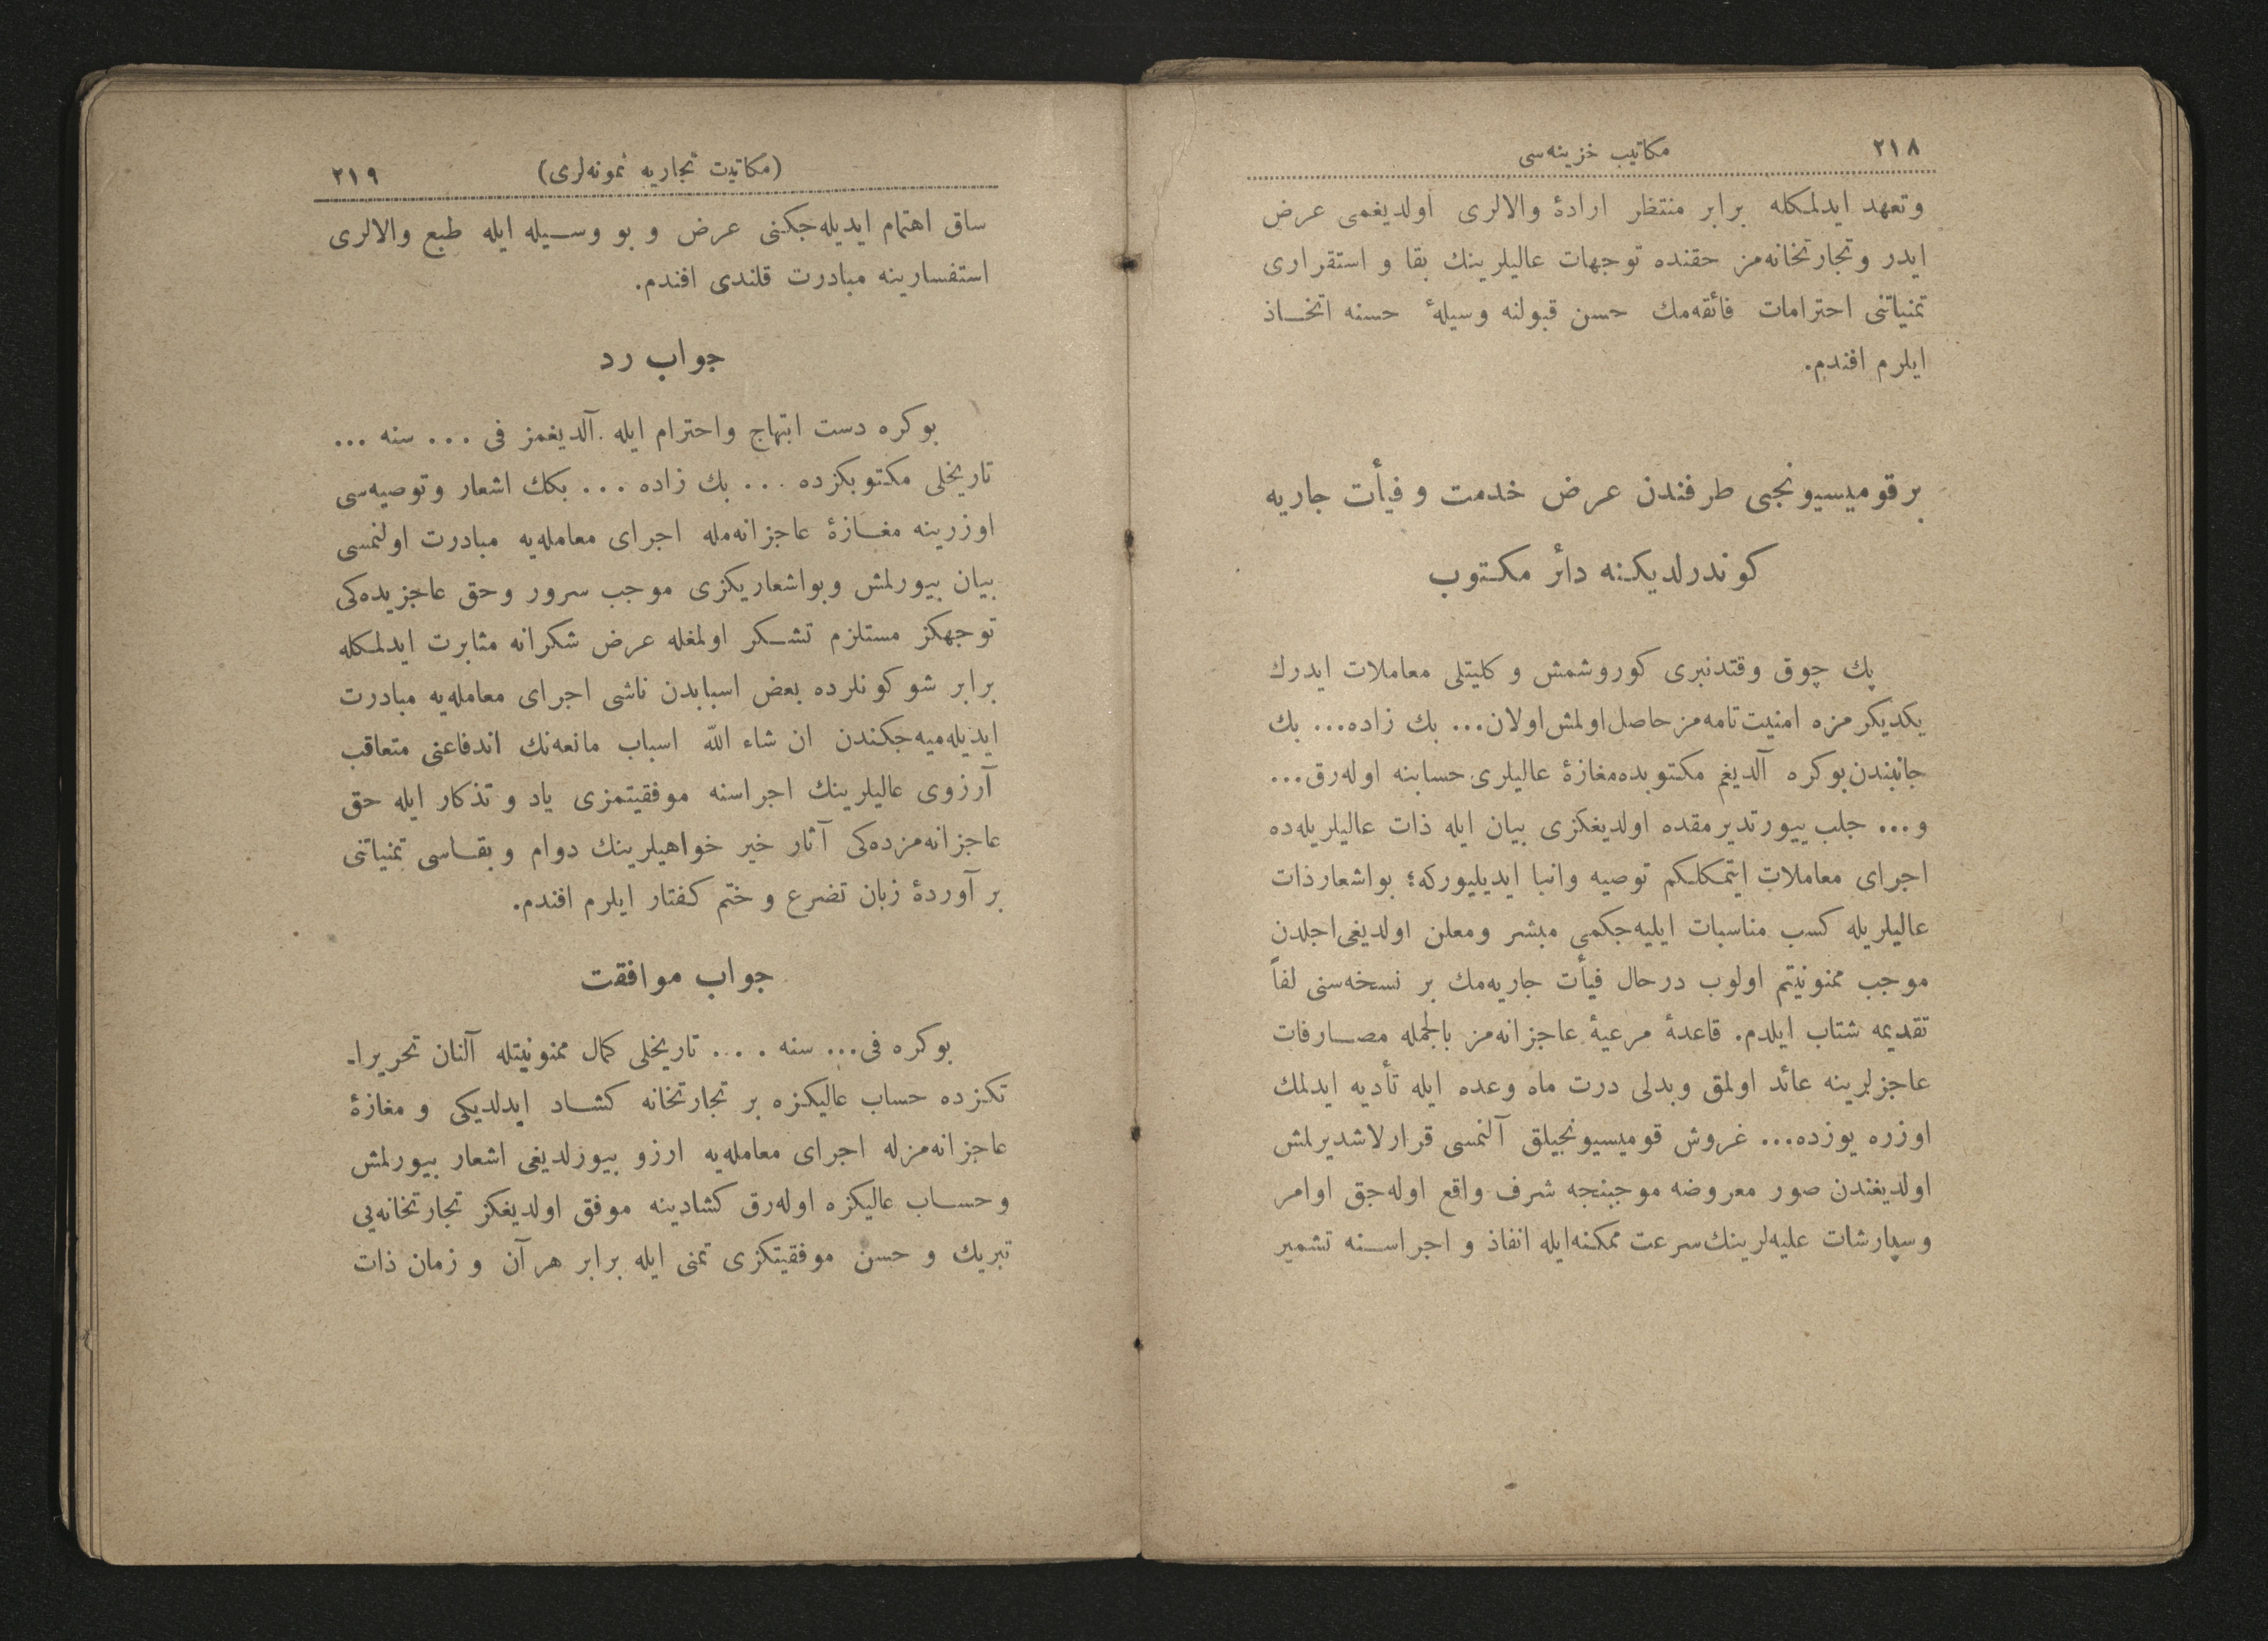 ٢١٨
مكاتيب خزينه‌سی
وتعهد ايدلمكله برابر منتظر ارادۀ والالری اولديغمی عرض
ايدر وتجارتخانه‌مز حقنده توجهات عاليلرينك بقا و استقراری
تمنياتنی احترامات فائقه‌مك حسن قبولنه وسيلۀ حسنه اتخاذ
ايلرم افندم.
برقوميسيونجی طرفندن عرض خدمت و فيأت جاريه
كوندرلديكنه دائر مكتوب
پك چوق وقتدنبری كوروشمش و كليتلی معاملات ايدرك
يكديكرمزه امنيت تامه‌مز حاصل اولمش اولان... بك زاده... بك
جانبندن بوكره آلديغم مكتوبده مغازۀ عاليلری حسابنه اوله‌رق...
و... جلب بيورتديرمقده اولديغكزی بيان ايله ذات عاليلريله‌ده
اجرای معاملات ايتمكلكم توصيه وانبا ايديليوركه؛ بواشعار ذات
عاليلريله كسب مناسبات ايليه‌جكمی مبشر ومعلن اولديغی اجلدن
موجب ممنونيتم اولوب درحال فيأت جاريه‌مك بر نسخه‌سنی لفاً
تقديمه شتاب ايلدم. قاعدۀ مرعيۀ عاجزانه‌مز بالجمله مصارفات
عاجزلرينه عائد اولمق وبدلی درت ماه وعده ايله تأديه ايدلمك
اوزره يوزده... غروش قوميسيونجيلق آلنمسی قرارلاشديرلمش
اولديغندن صور معروضه موجبنجه شرف واقع اوله‌جق اوامر
وسپارشات عليه‌لرينك سرعت ممكنه ايله انفاذ و اجراسنه تشمير
(مكاتيت تجاريه نمونه‌لری)
٢١٩
ساق اهتمام ايديله‌جكنی عرض و بو وسيله ايله طبع والالری
استفسارينه مبادرت قلندی افندم.
جواب رد
بوكره دست ابتهاج واحترام ايله آلديغمز فی ... سنه ...
تاريخلی مكتوبكزده ... بك زاده ... بكك اشعار وتوصيه‌سی
اوزرينه مغازۀ عاجزانه‌مله اجرای معامله‌يه مبادرت اولنمسی
بيان بيورلمش وبواشعاريكزی موجب سرور وحق عاجزيده‌كی
توجهكز مستلزم تشكر اولمغله عرض شكرانه مثابرت ايدلمكله
برابر شو كونلرده بعض اسبابدن ناشی اجرای معامله‌يه مبادرت
ايديله‌ميه‌جكندن ان شاء الله اسباب مانعه‌نك اندفاعنی متعاقب
آرزوی عاليلرينك اجراسنه موفقيتمزی ياد و تذكار ايله حق
عاجزانه‌مزده‌كی آثار خير خواهيلرينك دوام و بقاسی تمنياتنی
بر آوردۀ زبان تضرع و ختم كفتار ايلرم افندم.
جواب موافقت
بوكره فی... سنه .... تاريخلی كمال ممنونيتله آلنان تحريرا-
تكزده حساب عاليكزه بر تجارتخانه كشاد ايدلديكی و مغازۀ
عاجزانه‌مزله اجرای معامله‌يه ارزو بيورلديغی اشعار بيورلمش
وحساب عاليكزه اوله‌رق كشادينه موفق اولديغكز تجارتخانه‌يی
تبريك و حسن موفقيتكزی تمنی ايله برابر هر آن و زمان ذات